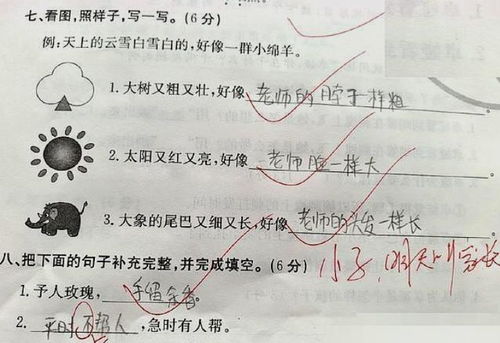 七、看图,照样子,写一写。(6分)
例:天上的云雪白雪白的,好像一群小绵羊。
1.大树又粗又壮,好像老师的脖子一样粗。
2.太阳又红又亮,好像老师脸一样大。
3.大象的尾巴又细又长,好像老师的头发一样长。
八、把下面的句子补充完整,并完成填空。(6分)
小子,明天叫家长
1.予人玫瑰,手留余香。
2.平时不帮人,急时有人帮。